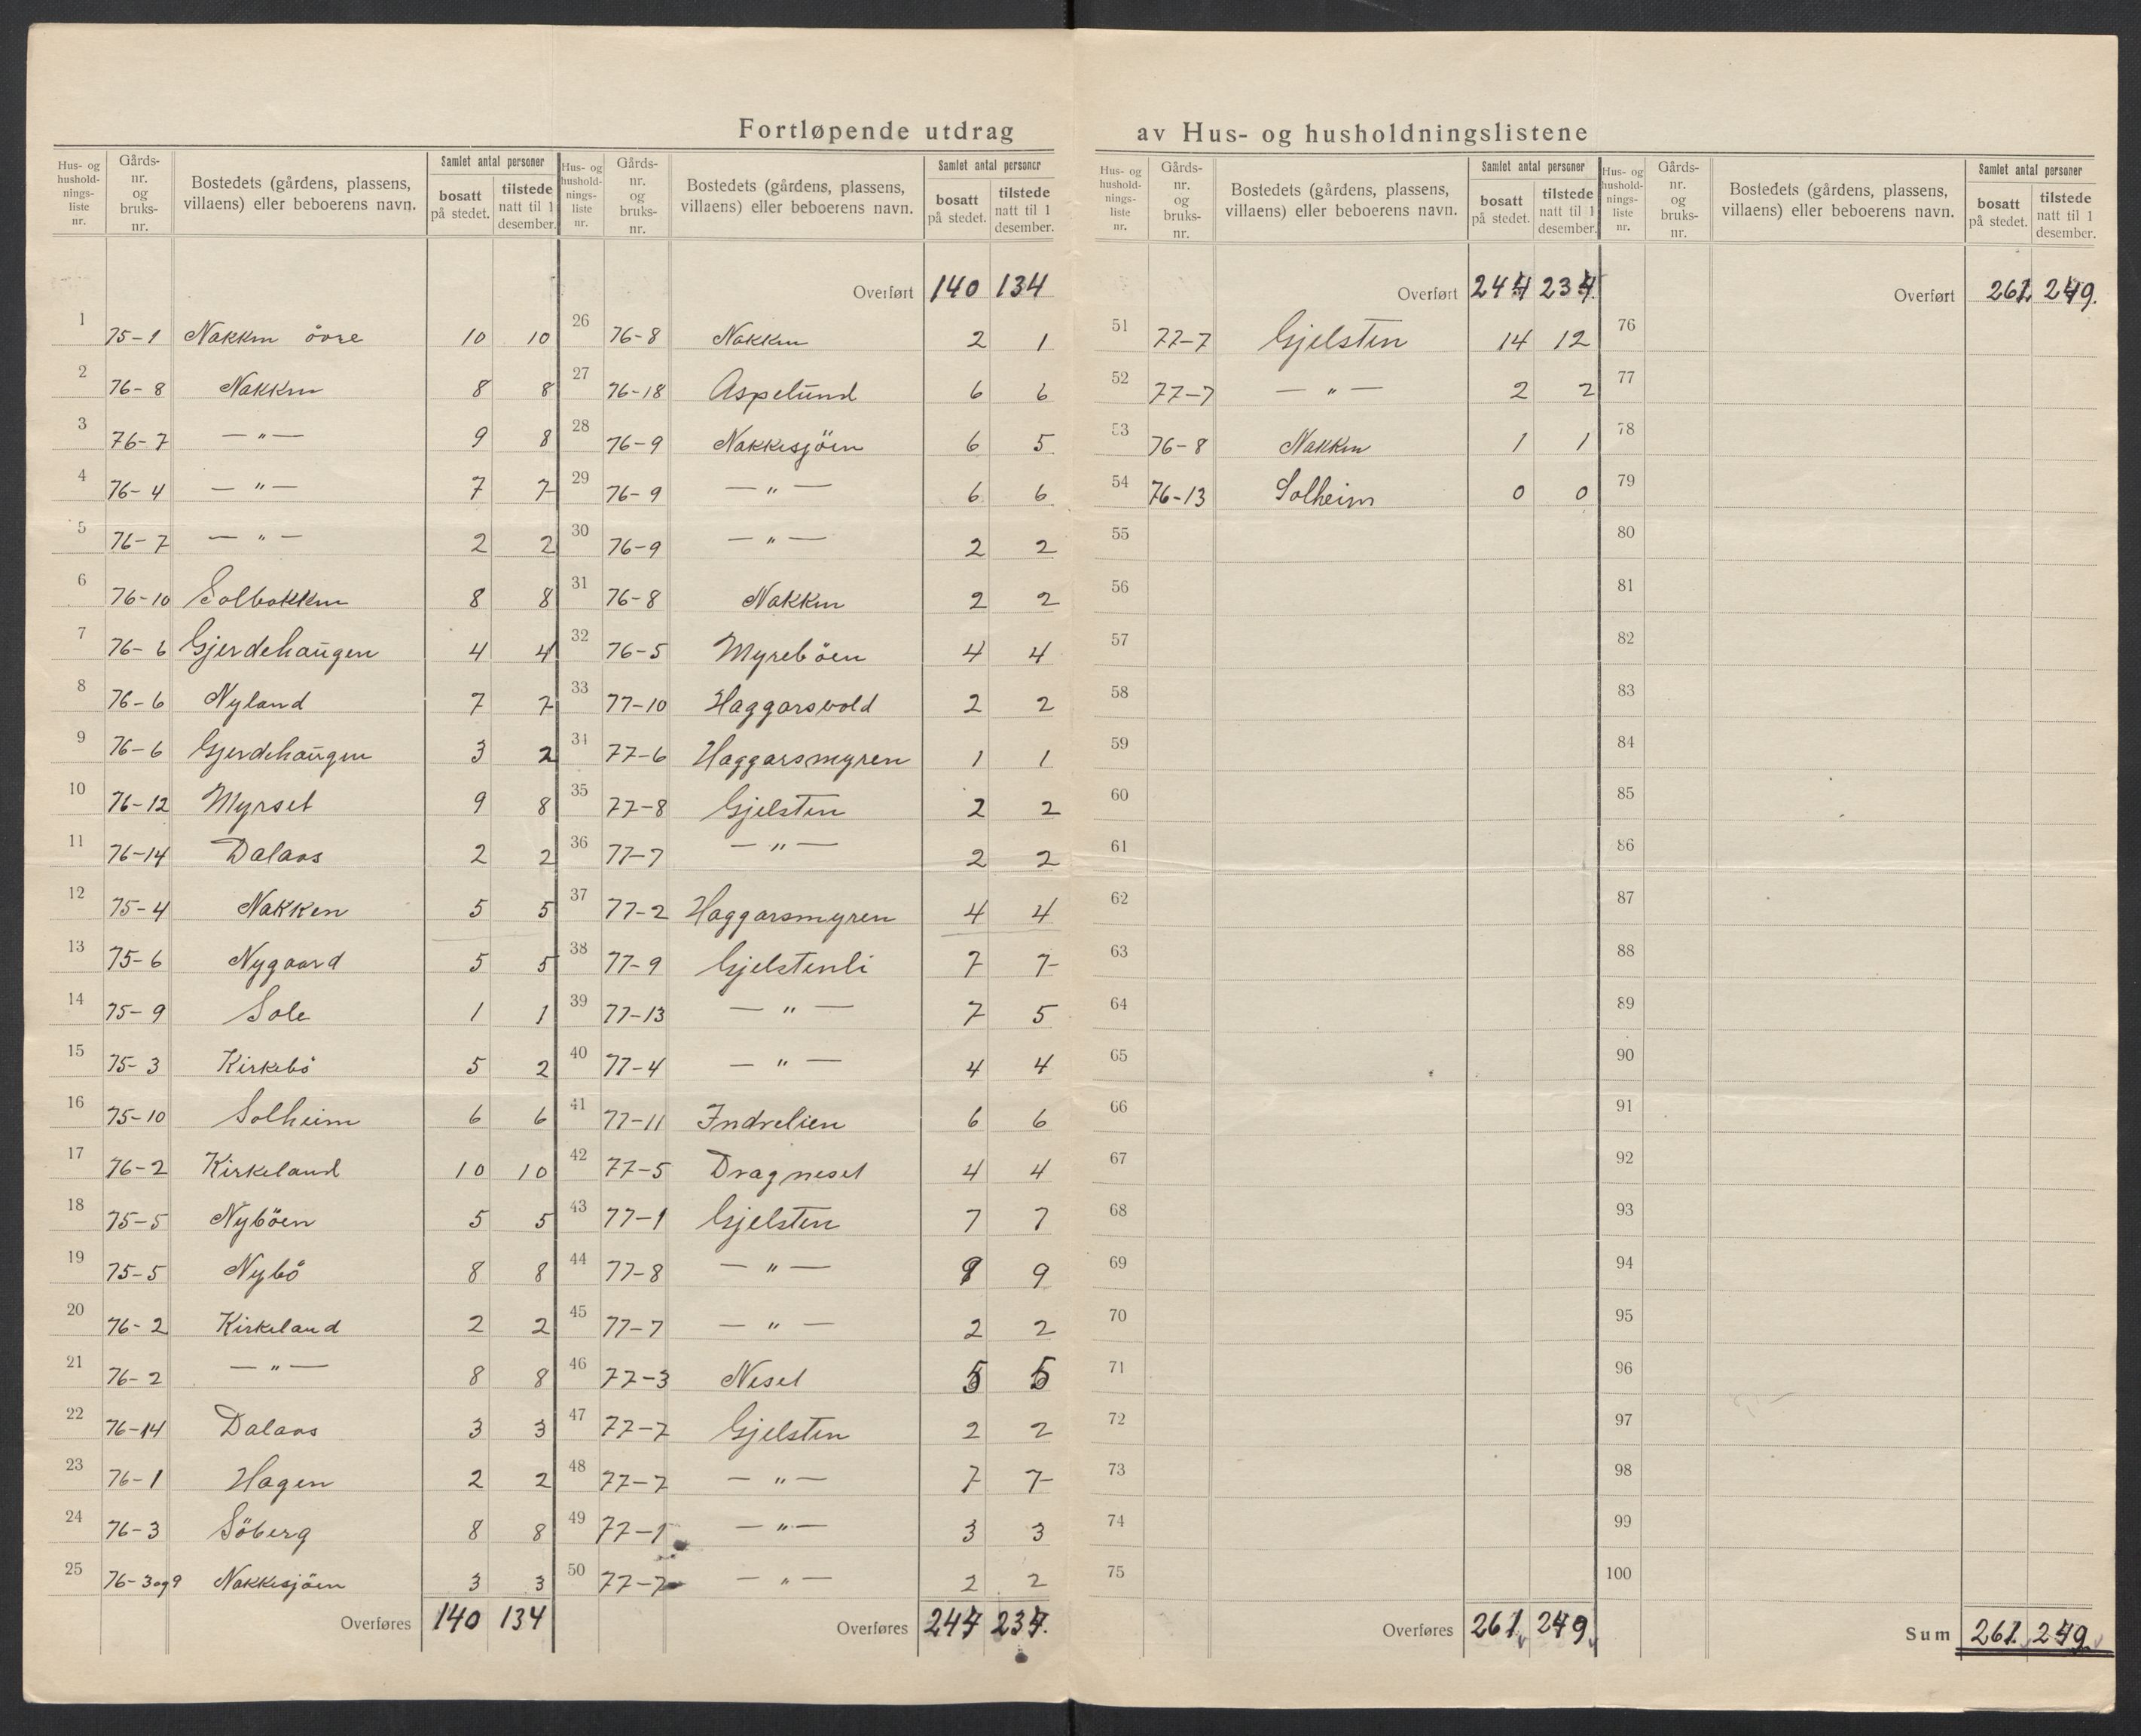 Fortløpende utdrag av Hus- og husholdningslistene
Hus- og husholdnings-liste nr. | Gårds-nr. og bruks-nr. | Bostedets (gårdens, plassens, villaens) eller beboerens navn. | Samlet antal personer bosatt på stedet. | tilstede natt til 1 desember.
1 75-1 Nakken övre 10 10
2 76-8 Nakken 8 8
3 76-7 — " — 9 8
4 76-4 — " — 7 7
5 76-7 — " — 2 2
6 76-10 Solbakken 8 8
7 76-6 Gjerdehaugen 4 4
8 76-6 Nyland 7 7
9 76-6 Gjerdehaugen 3 2
10 76-12 Myrset 9 8
11 76-14 Dalaas 2 2
12 75-4 Nakken 5 5
13 75-6 Nygaard 5 5
14 75-9 Sole 1 1
15 75-3 Kirkebö 5 2
16 75-10 Solheim 6 6
17 76-2 Kirkeland 10 10
18 75-5 Nyböen 5 5
19 75-5 Nybö 8 8
20 76-2 Kirkeland 2 2
21 76-2 — " — 8 8
22 76-14 Dalaas 3 3
23 76-1 Hagen 2 2
24 76-3 Söberg 8 8
25 76-3 og 9 Nakkesjöen 3 3
Overføres 140 134
Hus- og husholdnings-liste nr. | Gårds-nr. og bruks-nr. | Bostedets (gårdens, plassens, villaens) eller beboerens navn. | Samlet antal personer bosatt på stedet. | tilstede natt til 1 desember.
Overført 140 134
26 76-8 Nakken 2 1
27 76-18 Aspelund 6 6
28 76-9 Nakkesjöen 6 5
29 76-9 — " — 6 6
30 76-9 — " — 2 2
31 76-8 Nakken 2 2
32 76-5 Myreböen 4 4
33 77-10 Haggarsvold 2 2
34 77-6 Haggarsmyren 1 1
35 77-8 Gjelsten 2 2
36 77-7 — " — 2 2
37 77-2 Haggarsmyren 4 4
38 77-9 Gjelstenli 7 7
39 77-13 — " — 7 5
40 77-4 — " — 4 4
41 77-11 Indrelien 6 6
42 77-5 Dragneset 4 4
43 77-1 Gjelsten 7 7
44 77-8 — " — 9 9
45 77-7 — " — 2 2
46 77-3 Neset 5 5
47 77-7 Gjelsten 2 2
48 77-7 — " — 7 7
49 77-1 — " — 3 3
50 77-7 — " — 2 2
Overføres
Hus- og husholdnings-liste nr. | Gårds-nr. og bruks-nr. | Bostedets (gårdens, plassens, villaens) eller beboerens navn. | Samlet antal personer bosatt på stedet. | tilstede natt til 1 desember.
Overført
51 77-7 Gjelsten 14 12
52 77-7 — " — 2 2
53 76-8 Nakken 1 1
54 76-13 Solheim 0 0
55
56
57
58
59
60
61
62
63
64
65
66
67
68
69
70
71
72
73
74
75
Overføres 261 249
Hus- og husholdnings-liste nr. | Gårds-nr. og bruks-nr. | Bostedets (gårdens, plassens, villaens) eller beboerens navn. | Samlet antal personer bosatt på stedet. | tilstede natt til 1 desember.
Overført 261 249.
76
77
78
79
80
81
82
83
84
85
86
87
88
89
90
91
92
93
94
95
96
97
98
99
100
Sum 261 249